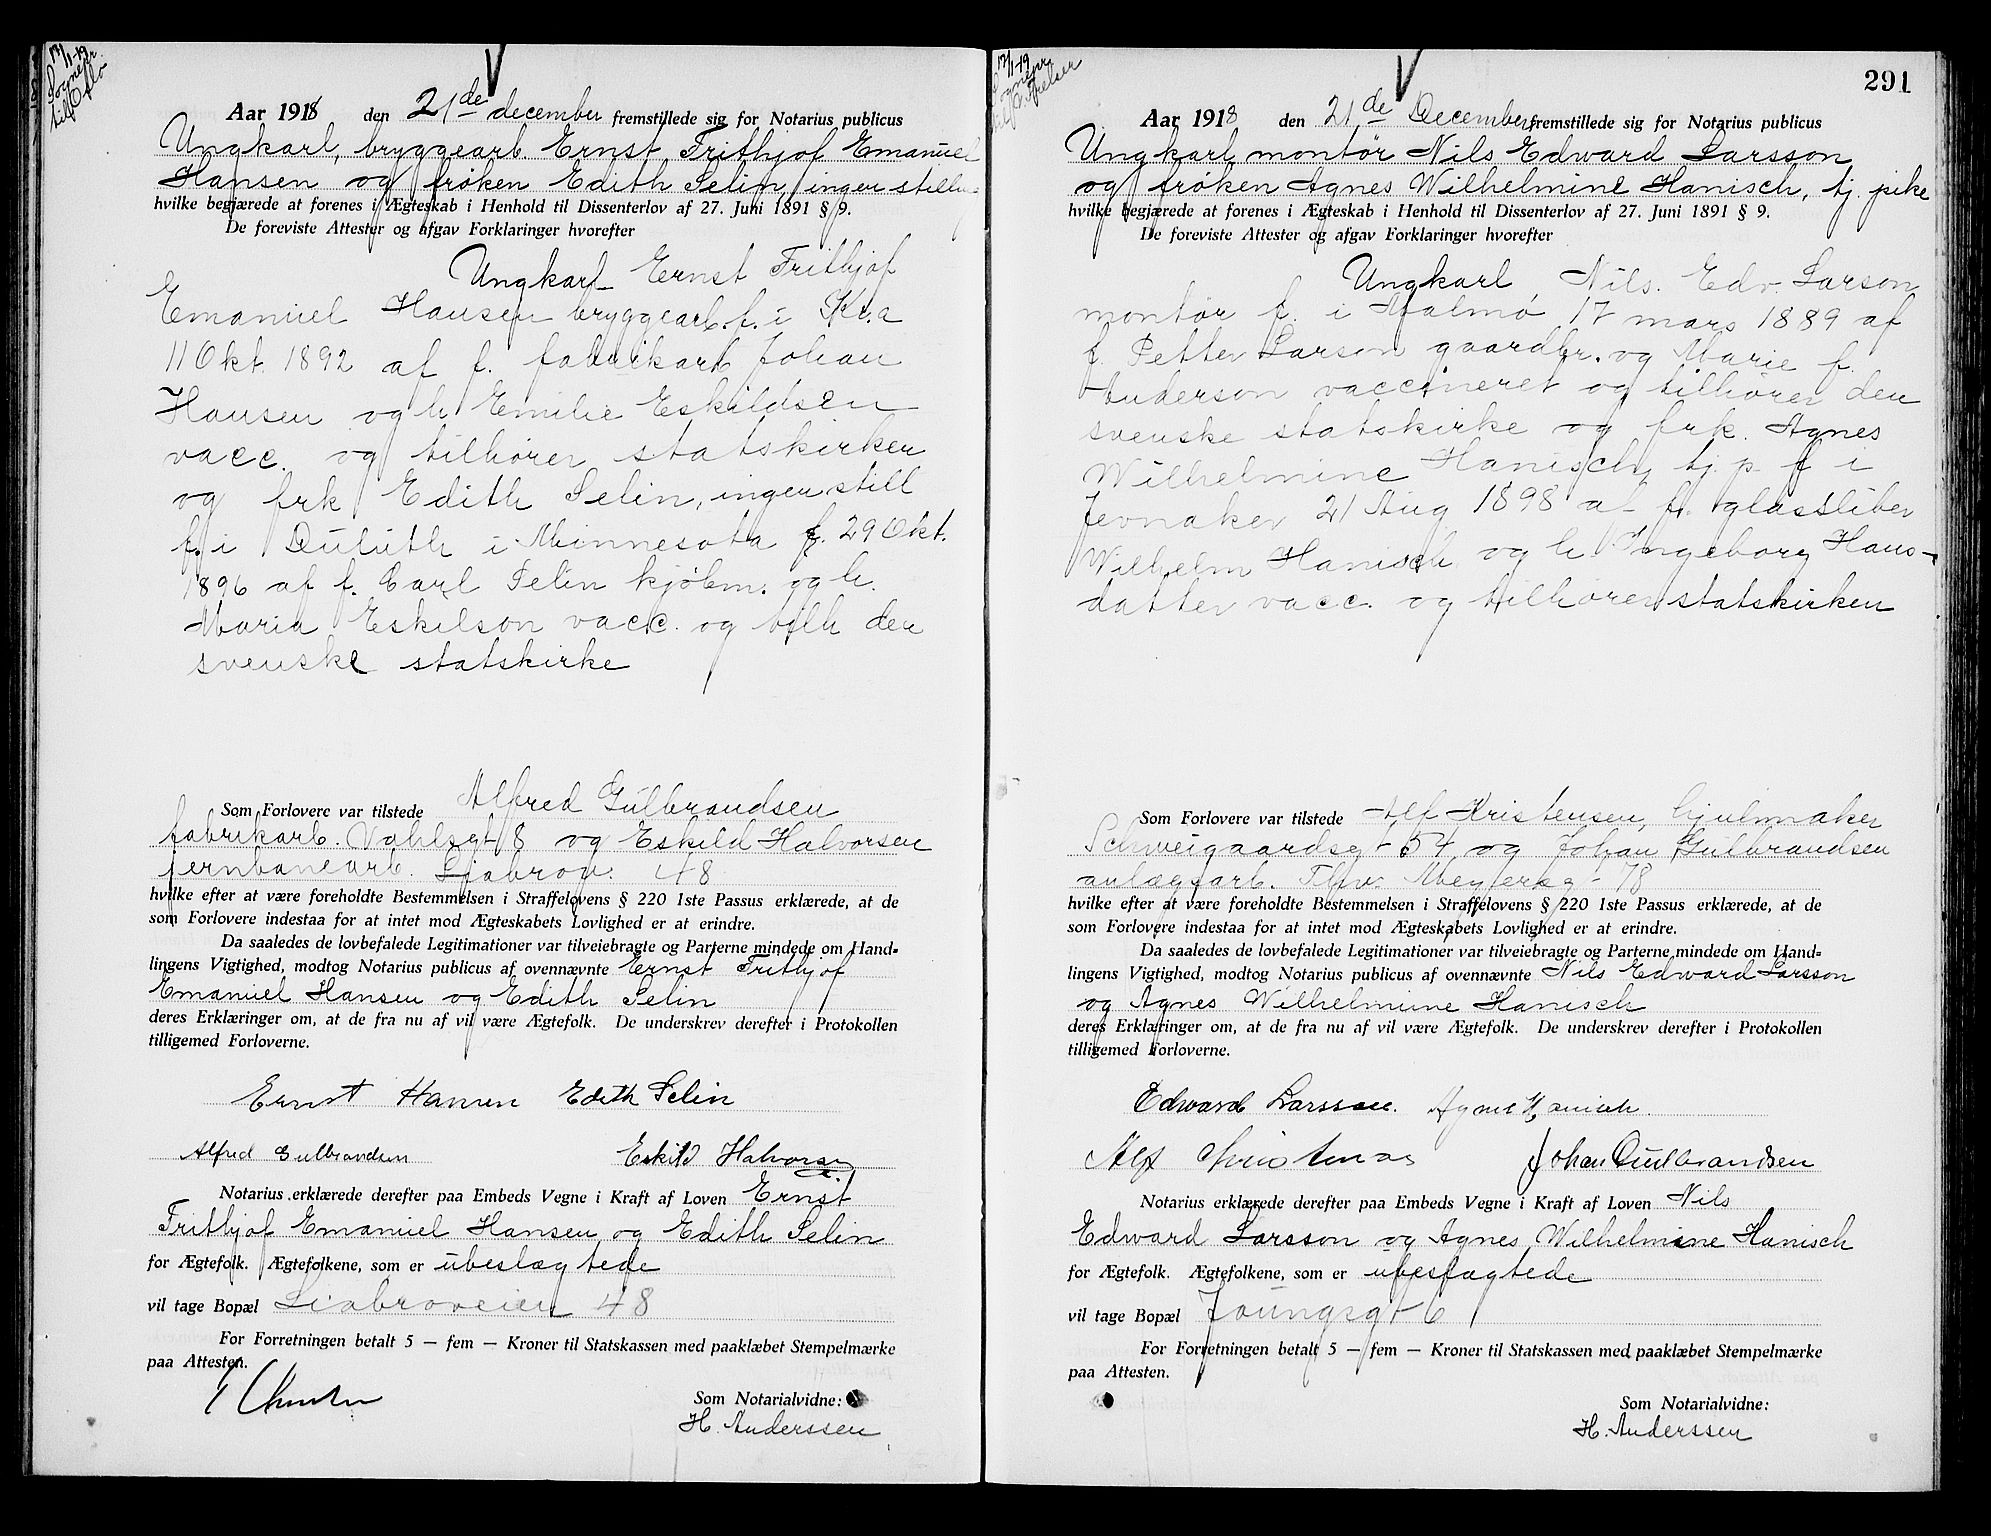 13/1-19
Sognepr.
til Oslo
Aar 1918 den 21de december fremstillede sig for Notarius publicus
Ungkarl, bryggearb. Ernst Frithjof Emanuel
Hansen og frøken Edith Selin, ingen stilln.
hvilke begjærede at forenes i Ægteskab i Henhold til Dissenterlov af 27. Juni 1891 § 9.
De foreviste Attester og afgav Forklaringer hvorefter
Ungkarl Ernst Frithjof
Emanuel Hansen bryggearb. f. i Kr.a
11 Okt. 1892 af f. fabrikarb Johan
Hansen og h. Emilie Eskildsen
vacc. og tilhører statskirken
og frk Edith Selin, ingen still
f. i Duluth i Minnesota f. 29 Okt.
1896 af f. Carl Selin kjøbm. og h.
Maria Eskilson vacc. og tilh den
svenske statskirke
Som Forlovere var tilstede Alfred Gulbrandsen
fabrikarb. Vahlsgt 8 og Eskild Halvorsen
jernbanearb. Ljabrov. 48
hvilke efter at være foreholdte Bestemmelsen i Straffelovens § 220 1ste Passus erklærede, at de
som Forlovere indestaa for at intet mod Ægteskabets Lovlighed er at erindre.
Da saaledes de lovbefalede Legitimationer var tilveiebragte og Parterne mindede om Hand-
lingens Vigtighed, modtog Notarius publicus af ovennævnte Ernst Frithjof
Emanuel Hansen og Edith Selin
deres Erklæringer om, at de fra nu af vil være Ægtefolk. De underskrev derefter i Protokollen
tilligemed Forloverne.
Ernst Hansen Edith Selin
Alfred Gulbrandsen Eskild Halvorsen
Notarius erklærede derefter paa Embeds Vegne i Kraft af Loven Ernst
Frithjof Emanuel Hansen og Edith Selin
for Ægtefolk. Ægtefolkene, som er ubeslægtede
vil tage Bopæl Liabroveien 48
For Forretningen betalt 5 — fem — Kroner til Statskassen med paaklæbet Stempelmærke
paa Attesten.
Som Notarialvidne:
H. Anderssen
291
13/1-19
Sognepr.
Aar 1918 den 21de December fremstillede sig for Notarius publicus
Ungkarl montør Nils Edward Larsson
og frøken Agnes Wilhelmine Hanisch, tj. pike
hvilke begjærede at forenes i Ægteskab i Henhold til Dissenterlov af 27. Juni 1891 § 9.
De foreviste Attester og afgav Forklaringer hvorefter
Ungkarl Nils. Edv. Larson
montør f. i Malmø 17 mars 1889 af
f. Petter Larson gaardbr. og Marie f.
Anderson vaccineret og tilhører den
svenske statskirke og frk. Agnes
Wilhelmine Hanisch, tj. p. f i
Jevnaker 21 Aug 1898 af f. glassliber
Wilhelm Hanisch og h Ingeborg Hans-
datter vacc. og tilhører statskirken
Som Forlovere var tilstede Alf Kristensen, hjulmaker
Schweigaardsgt 54 og Johan Gulbrandsen
anlægsarb. Thv. Meyersgt 78
hvilke efter at være foreholdte Bestemmelsen i Straffelovens § 220 1ste Passus erklærede, at de
som Forlovere indestaa for at intet mod Ægteskabets Lovlighed er at erindre.
Da saaledes de lovbefalede Legitimationer var tilveiebragte og Parterne mindede om Hand-
lingens Vigtighed, modtog Notarius publicus af ovennævnte Nils Edward Larsson
og Agnes Wilhelmine Hanisch
deres Erklæringer om, at de fra nu af vil være Ægtefolk. De underskrev derefter i Protokollen
tilligemed Forloverne.
Edward Larsson. Agnes Hanisch.
Alf Christensen Johan Gulbrandsen
Notarius erklærede derefter paa Embeds Vegne i Kraft af Loven Nils
Edward Larsson og Agnes Wilhelmine Hanisch
for Ægtefolk. Ægtefolkene, som er ubeslagtede
vil tage Bopæl Youngsgt 6
For Forretningen betalt 5 — fem — Kroner til Statskassen med paaklæbet Stempelmærke
paa Attesten.
Som Notarialvidne:
H. Anderssen